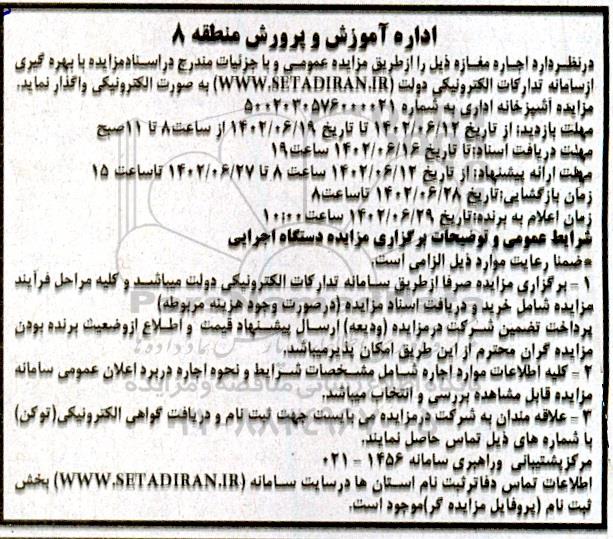 اداره آموزش و پرورش منطقه ۸
درنظر‌دارد اجاره مغازه ذیل را ازطریق مزایده عمومی و با جزئیات مندرج دراسنادمزایده با بهره گیری
ازسامانه تدارکات الکترونیکی دولت (WWW.SETADIRAN.IR) به صورت الکترونیکی واگذار نماید.
مزایده آشپزخانه اداری به شماره ۵۰۰۲۰۲۰۵۷۶۰۰۰۰۲۱
مهلت بازدید: از تاریخ ۱۴۰۲/۰۶/۱۲ تا تاریخ ۱۴۰۲/۰۶/۱۹ از ساعت۸ تا ۱۱صبح
مهلت دریافت اسناد:تا تاریخ ۱۴۰۲/۰۶/۱۶ ساعت۱۹
مهلت ارائه پیشنهاد: از تاریخ ۱۴۰۲/۰۶/۱۲ ساعت ۸ تا ۱۴۰۲/۰۶/۲۷ تاساعت ۱۵
زمان بازگشایی:تاریخ ۱۴۰۲/۰۶/۲۸ تاساعت۸
زمان اعلام به برنده:تاریخ ۱۴۰۲/۰۶/۲۹ ساعت۱۰:۰۰
شرایط عمومی و توضیحات برگزاری مزایده دستگاه اجرایی
*ضمنا رعایت موارد ذیل الزامی است.
۱ – برگزاری مزایده صرفا ازطریق سامانه تدارکات الکترونیکی دولت میباشد و کلیه مراحل فرآیند
مزایده شامل خرید و دریافت اسناد مزایده (درصورت وجود هزینه مربوطه)
پرداخت تضمین شرکت درمزایده (ودیعه) ارسال پیشنهاد قیمت و اطلاع ازوضعیت برنده بودن
مزایده گران محترم از این طریق امکان پذیرمیباشد.
۲ – کلیه اطلاعات موارد اجاره شامل مشخصات شرایط و نحوه اجاره دربرد اعلان عمومی سامانه
مزایده قابل مشاهده بررسی و انتخاب میباشد.
۳ – علاقه مندان به شرکت درمزایده می بایست جهت ثبت نام و دریافت گواهی الکترونیکی(توکن)
با شماره های ذیل تماس حاصل نمایند.
مرکزپشتیبانی وراهبری سامانه ۱۴۵۶ – ۰۲۱
اطلاعات تماس دفاترثبت نام استان ها درسایت سامانه (WWW.SETADIRAN.IR) بخش
ثبت نام (پروفایل مزایده گر)موجود است.